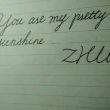 You are my pretty
sunshine